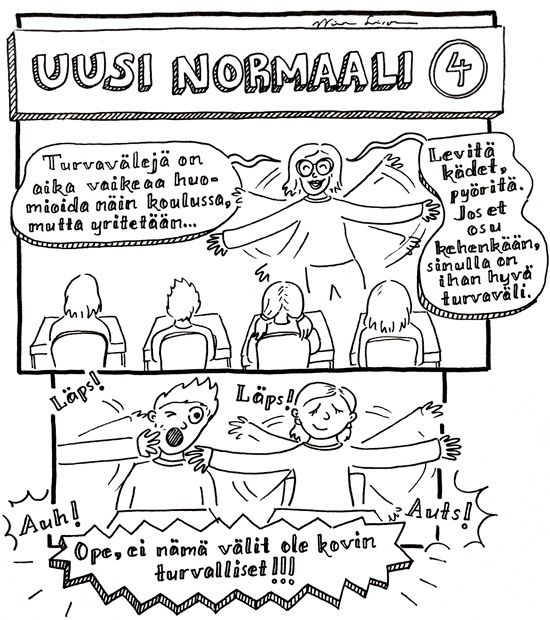 UUSI NORMAALI 4
Turvavälejä on
aika vaikeaa huo-
mioida näin koulussa,
mutta yritetään...
Levitä
kädet,
pyöritä.
Jos et
osu
kehenkään,
sinulla on
ihan hyvä
turvaväli.
Läps!
Läps!
Auh!
Auts!
Ope, ei nämä välit ole kovin
turvalliset!!!